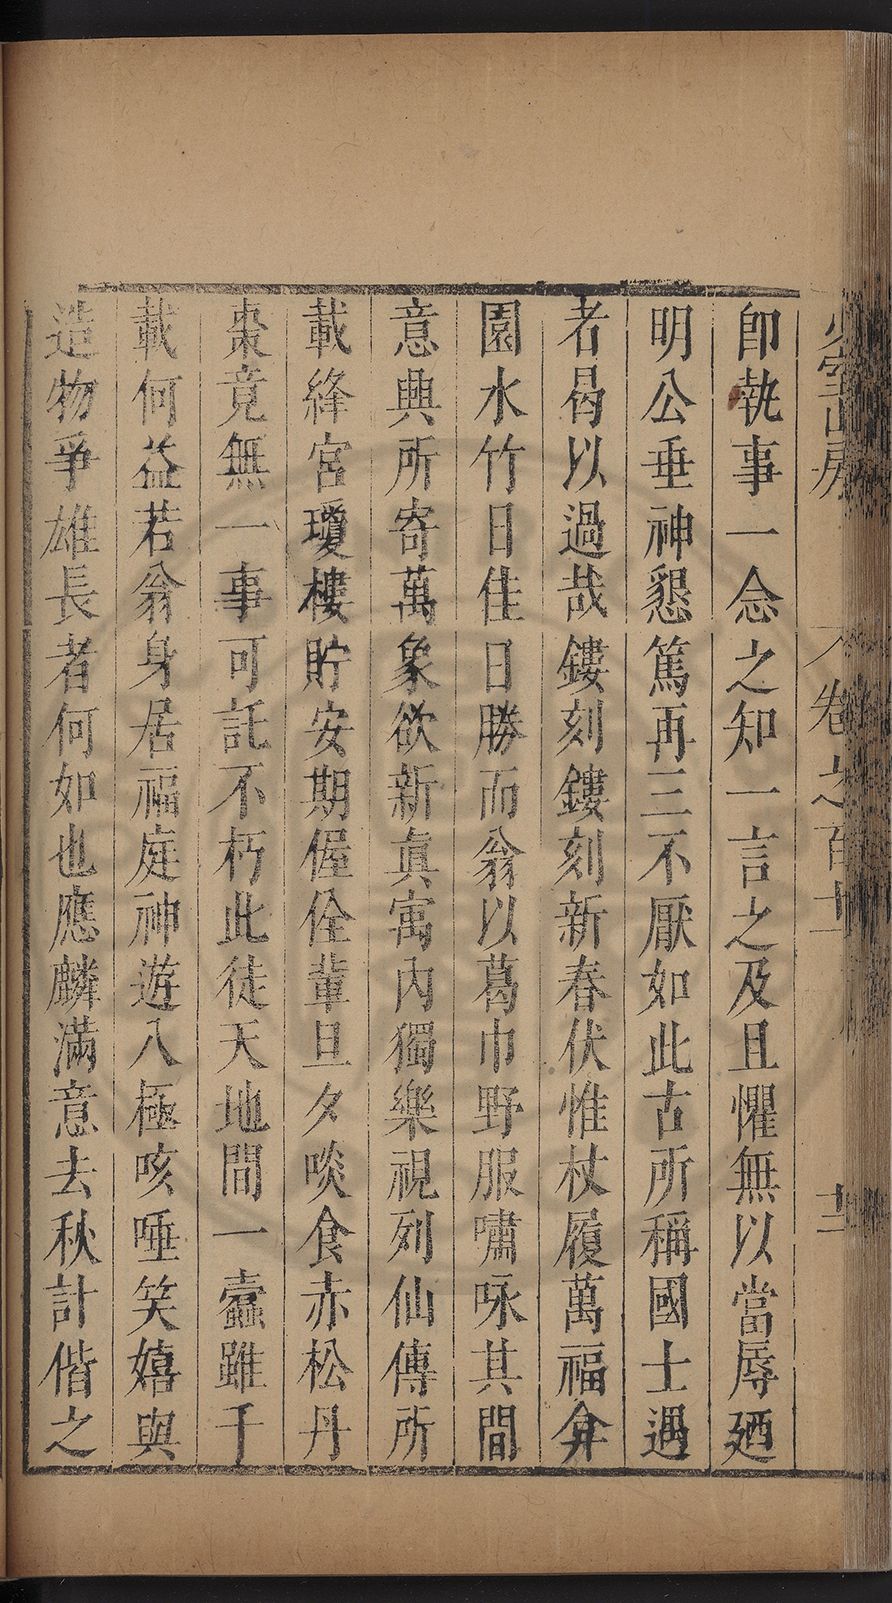 即執事一念之知一言之及且懼無以當辱廼
明公垂神懇篤再三不厭如此古所稱國士遇
者曷以過哉鏤刻鏤刻新春伏惟杖履萬福弇
園水竹日佳日勝而翁以葛巾野服嘯咏其間
意興所寄萬象欲新眞寓內獨樂視列仙傳所
載絳宮瓊樓貯安期偓佺輩旦夕啖食赤松丹
棗竟無一事可託不朽此徒天地間一蠹雖千
載何益若翁身居福庭神遊八極咳唾笑嬉與
造物爭雄長者何如也應麟滿意去秋計偕之
少室山房 卷之百十一 十二